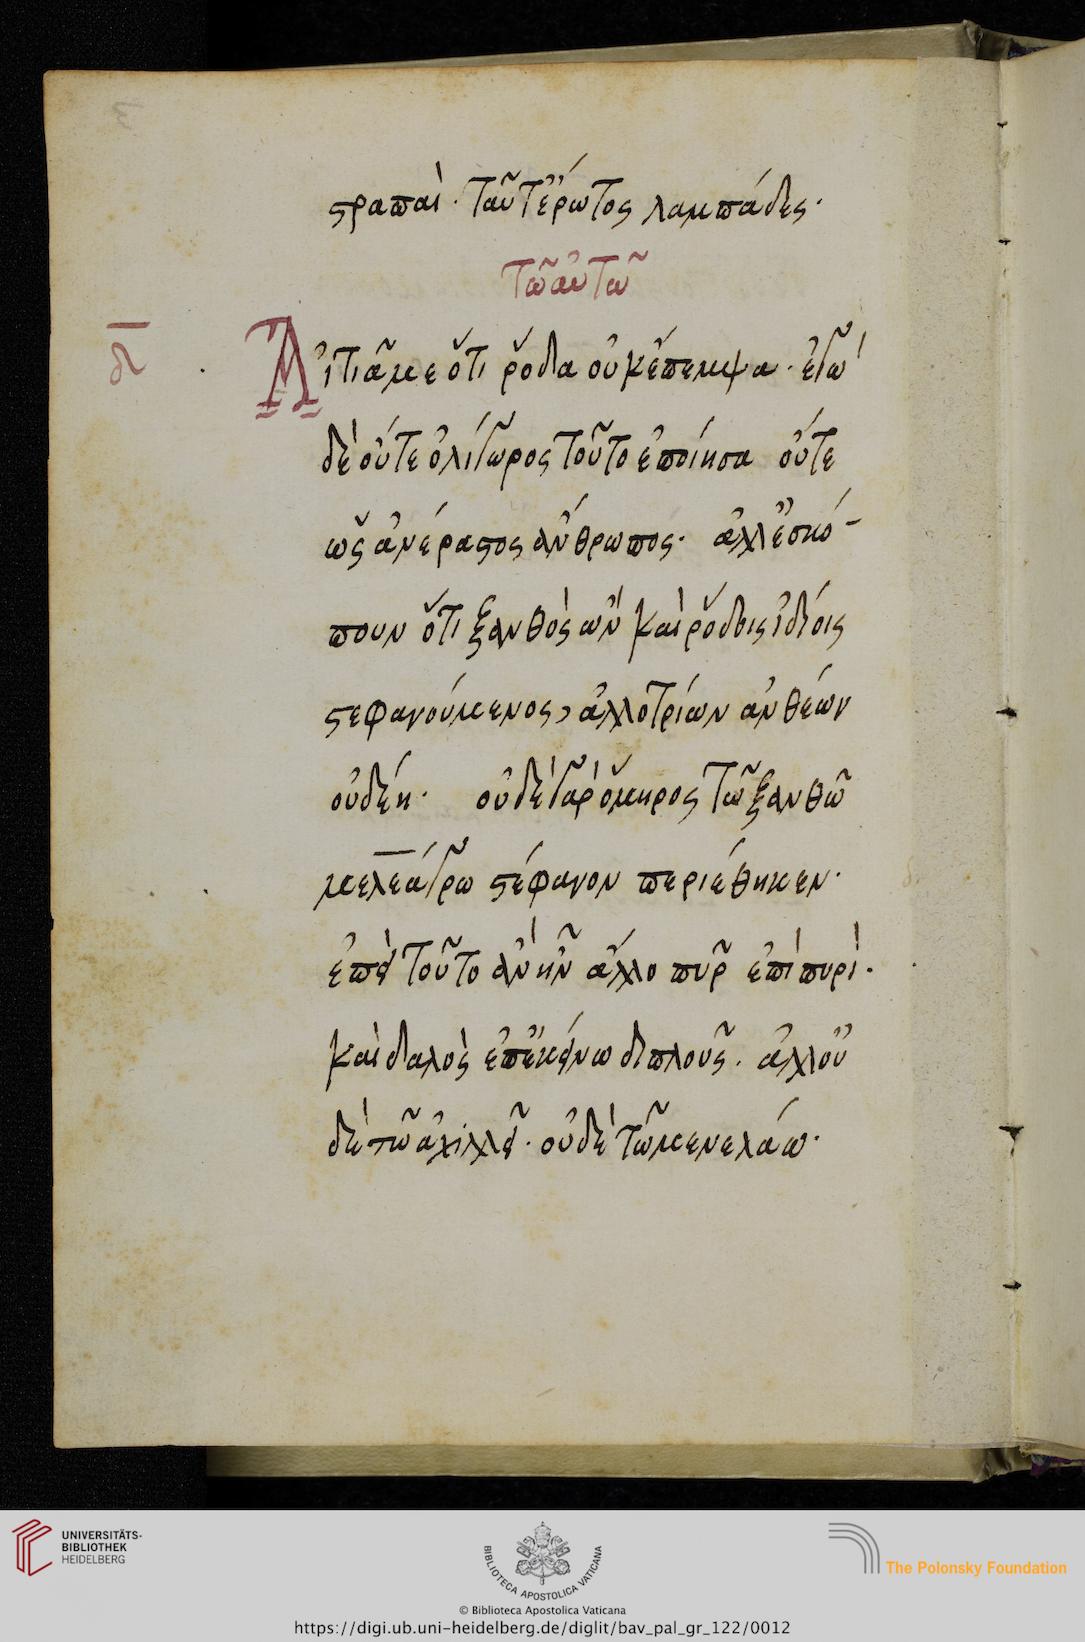 3
στραπαὶ· ταῦτ ἔρωτος λαμπάδες·
τῶ αὐτῶ
δ̅
Αἰτιᾶ με ὅτι ῥόδα οὐκ ἔπεμψα· ἐγὼ
δὲ οὔτε ὀλιγῶρος τοῦτο ἐποίησα οὔτε
ὡς ἀνέραστος ἄνθρωπος· ἀλλ ἐσκό-
πουν ὅτι ξανθὸς ὢν καὶ ῥόδοις ἰδίοις
στεφανούμενος, ἀλλοτρίων ἀνθέων
οὐδέη· οὐδὲ γὰρ ὅμηρος τῶ ξανθῶ
μελεάγρω στέφανον περιέθηκεν·
ἐπεὶ τοῦτο ἂν ἦν ἄλλο πῦρ ἐπὶ πυρὶ·
καὶ δαλὸς ἐπ ἐκείνω διπλοῦς· ἀλλ οὐ
δὲ τῶ ἀχιλλεῖ· οὐδὲ τῶ μενελάω·
UNIVERSITÄTS-
BIBLIOTHEK
HEIDELBERG
BIBLIOTECA APOSTOLICA VATICANA
The Polonsky Foundation
© Biblioteca Apostolica Vaticana
https://digi.ub.uni-heidelberg.de/diglit/bav_pal_gr_122/0012